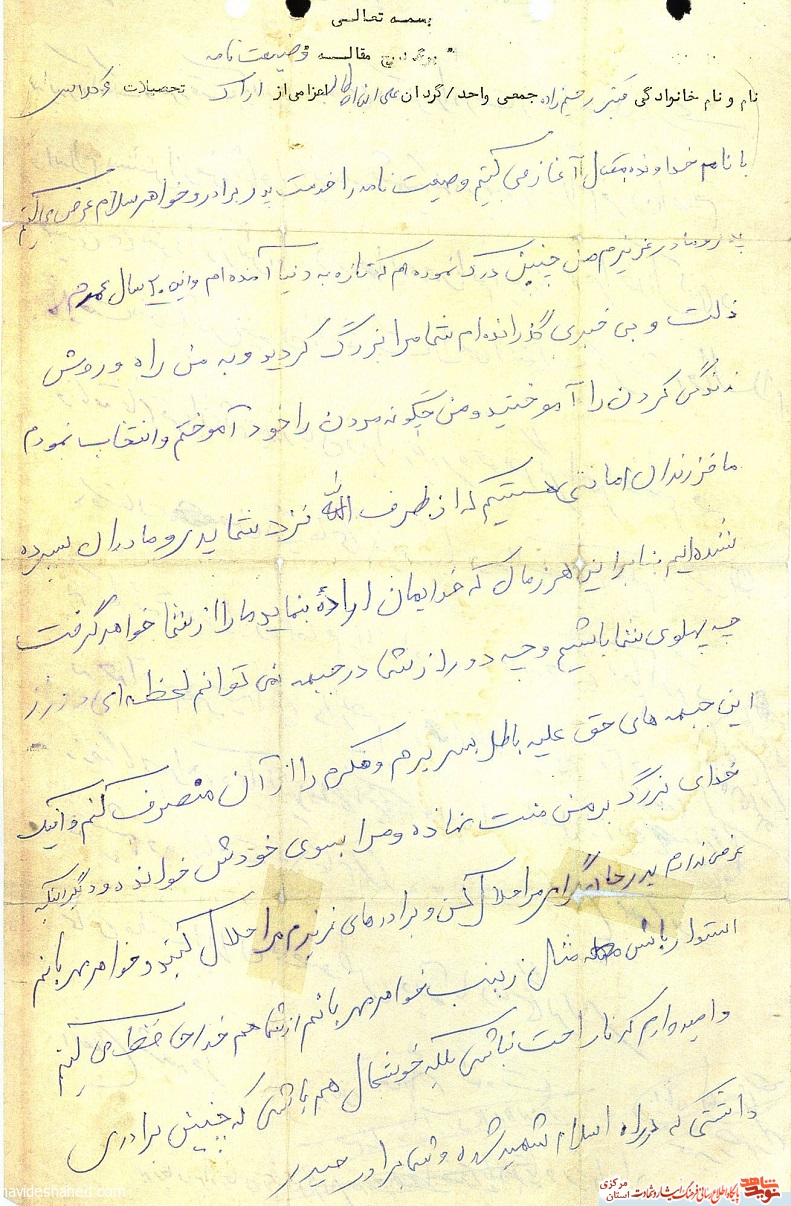 بسمه تعالی
برگ مقاله وصیت نامه
نام و نام خانوادگی قنبر رحیم زاده جمعی واحد/گردان علی ابن ابیطالب اعزامی از اراک تحصیلات
با نام خداوند متعال آغاز می کنیم وصیت نامه را خدمت پدر برادر و خواهر سلام عرض می کنم
پدر و مادر عزیزم من چنین درک نموده ام که تازه به دنیا آمده ام و این ۲۰ سال عمرم
ذلت و بی خبری گذرانده ام شما مرا بزرگ کردید و به من راه و روش
زندگی کردن را آموختید و من چگونه مردن را خود آموختم و انتخاب نمودم
ما فرزندان امانتی هستیم که از طرف الله نزد شما پدر و مادران سپرده
شده ایم بنابراین هر زمان که خدایمان اراده بنماید ما را از شما خواهد گرفت
چه پهلوی شما باشیم و چه دور از شما در جبهه نمی توانم لحظه ای دور از
این جبهه های حق علیه باطل بسر برم و فکرم را از آن منصرف کنم و اینک
خدای بزرگ بر من منت نهاده و مرا بسوی خودش خوانده و دیگر اینکه
عرضی ندارم پدر جان مرا حلال کن و برادرهای عزیزم مرا حلال کنید و خواهر مهربانم
استوار باش مثال زینب خواهر مهربانم از شما هم خداحافظی می کنم
و امیدوارم که ناراحت نباشی بلکه خوشحال هم باشی که چنین برادری
داشتی که در راه اسلام شهید شده و شما برادر حیدر
navideshahed.com
نوید شاهد
پایگاه اطلاع رسانی فرهنگ ایثار و شهادت
مرکزی
استان